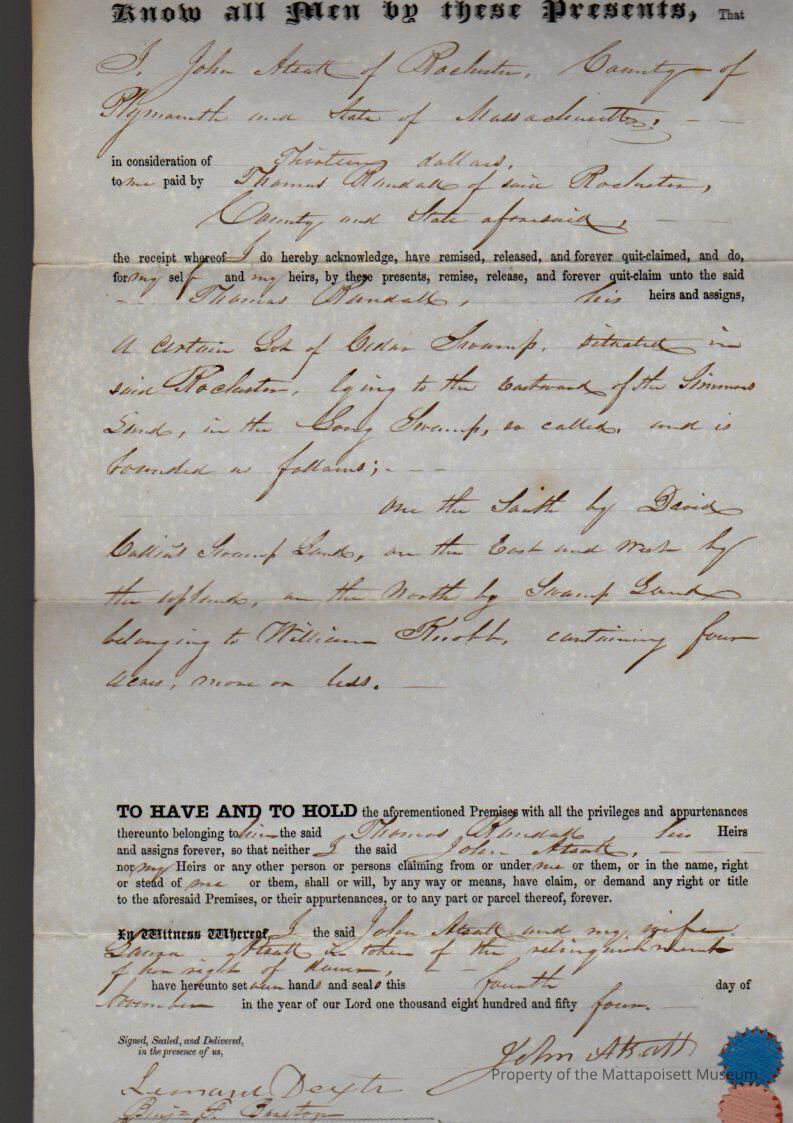 Know all Men by these Presents, That
I, John Atsatt of Rochester, County of
Plymouth and State of Massachusetts,
in consideration of Thirteen dollars,
to me paid by Thomas Randall of said Rochester,
County and State aforesaid,
the receipt whereof I do hereby acknowledge, have remised, released, and forever quit-claimed, and do,
for my self and my heirs, by these presents, remise, release, and forever quit-claim unto the said
Thomas Randall, his heirs and assigns,
A certain Lot of Cedar Swamp, situated in
said Rochester, lying to the Eastward of the Simmons
Land, in the Long Swamp, so called, and is
bounded as follows;
on the South by David
Swamp Land, on the East and West by
the upland, on the North by Swamp Land
belonging to William containing four
acres, more or less.
TO HAVE AND TO HOLD the aforementioned Premises with all the privileges and appurtenances
thereunto belonging to him the said Thomas Randall, his Heirs
and assigns forever, so that neither I the said John Atsatt,
nor my Heirs or any other person or persons claiming from or under me or them, or in the name, right
or stead of me or them, shall or will, by any way or means, have claim, or demand any right or title
to the aforesaid Premises, or their appurtenances, or to any part or parcel thereof, forever.
In Witness Whereof, I the said John Atsatt and my wife
Atsatt in token of the relinquishment
of her right of dower,
have hereunto set our hands and seals this fourth day of
November in the year of our Lord one thousand eight hundred and fifty four.
Signed, Sealed, and Delivered,
in the presence of us,
John Atsatt
Property of the Mattapoisett Museum
Leonard Dexter